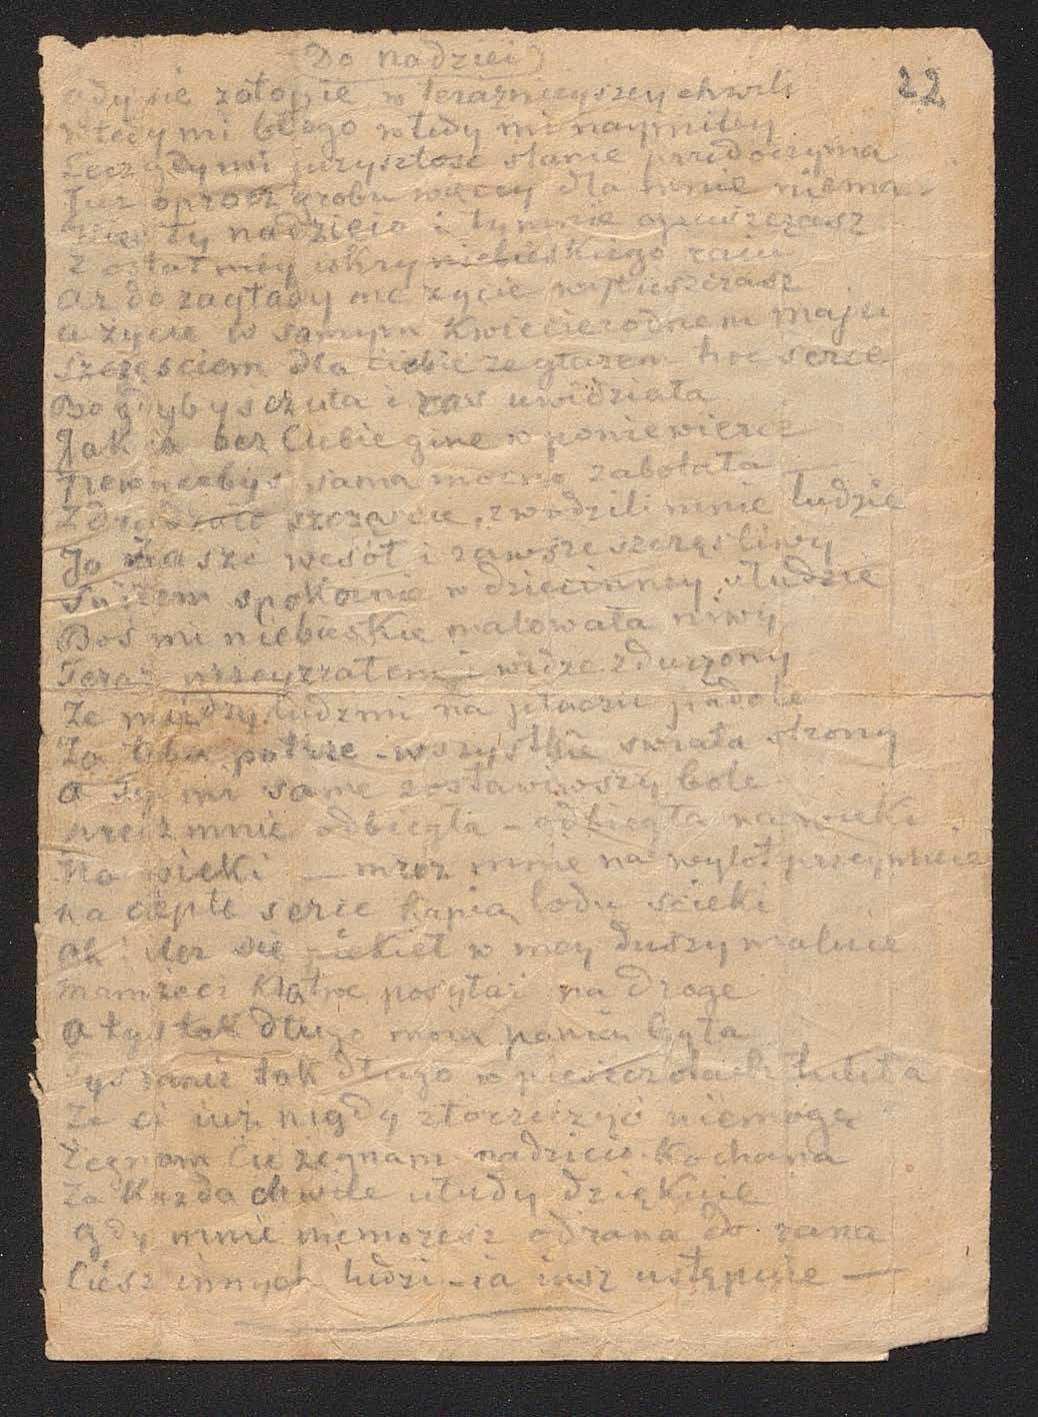 Do nadziei
22
Gdy sie zatopie w terazneyszey chwili
wtedy mi błogo wtedy mi naymiley
Lecz gdy mi przyszłosc stanie przedoczyma
Juz oprocz grobu więcey dla mnie niema
ty nadzieio i ty mnie opuszczasz
z ostatniey iskry niebieskiego raiu
az do zagłady me zycie wypuszczasz
a życie w samym kwiecierodnem maju
szczęsciem dla ciebie ze głazem twe serce
Bo gdybys czuła i raz uwidziała
Jak ia bez Ciebie gine w poniewierce
pewniebys sama mocno zabolała
szczęscie, zwodzili mnie ludzie
Jo wesół i zawsze szczęsliwy
spokoinie w dziecinney ułudzie
Bos mi niebieskie malowała niwy
Teraz przeyrzałem i widze zdurzony
Ze między ludzmi na płaczu padole
Za Toba patrze - wszystkie swiata strony
a Ty mi same zostawiwszy bole
precz mnie odbiegła - odbiegła na wieki
Na wieki — mroz mnie na wylot przeymuie
na ciepłe serce kapią lodu scieki
ah! der sie piekieł w mey duszy maluie
mamzeci klatwe posyłai na droge
a tys tak długo moia pania była
Tys panie tak długo w pieszczotach tuliła
Ze ci iuż nigdy złorzeczyć niemogę
Żegnam Cie zegnam nadzieio kochana
Za kazda chwile ułudy dziękuie
gdy mnie niemozesz odrana do rana
Ciesz innych ludzi - ia iusz ustępuie —